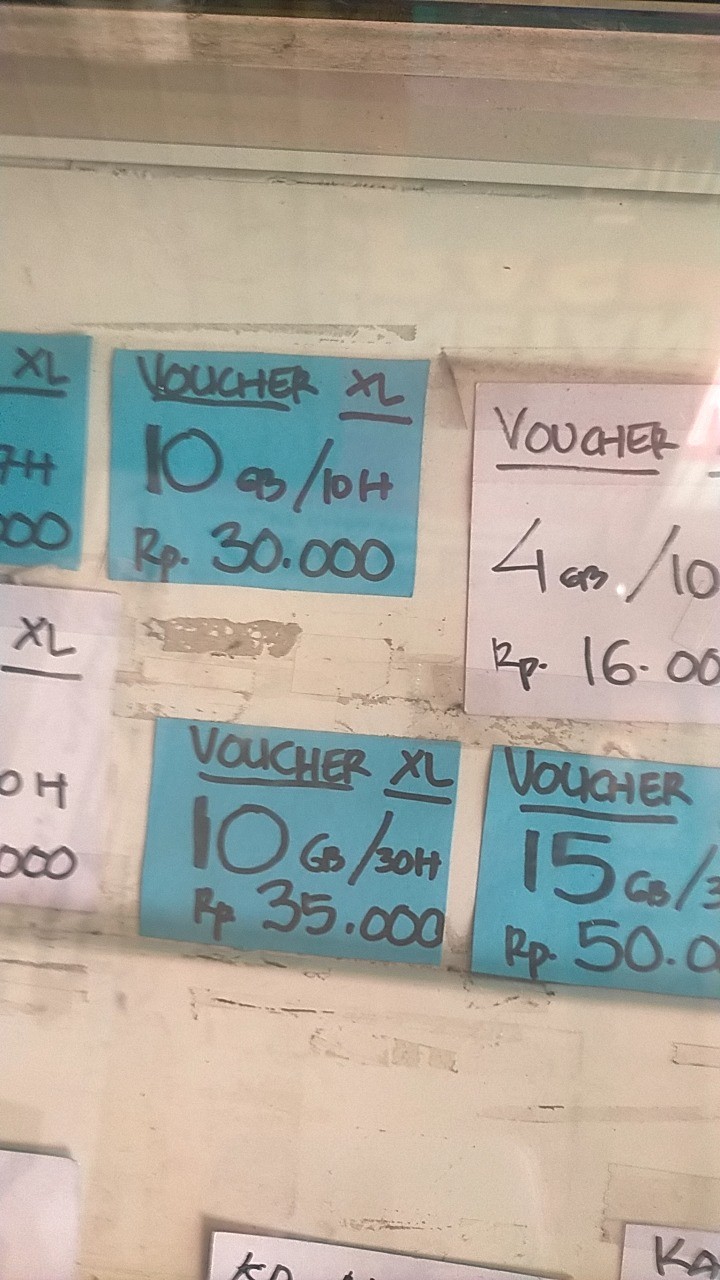 XL
7H
000
VOUCHER XL
10 GB/10H
Rp. 30.000
VOUCHER
4 GB/10
Rp. 16.00
XL
0H
000
VOUCHER XL
10 GB/30H
Rp. 35.000
VOUCHER
15 GB/3
Rp. 50.0
KA